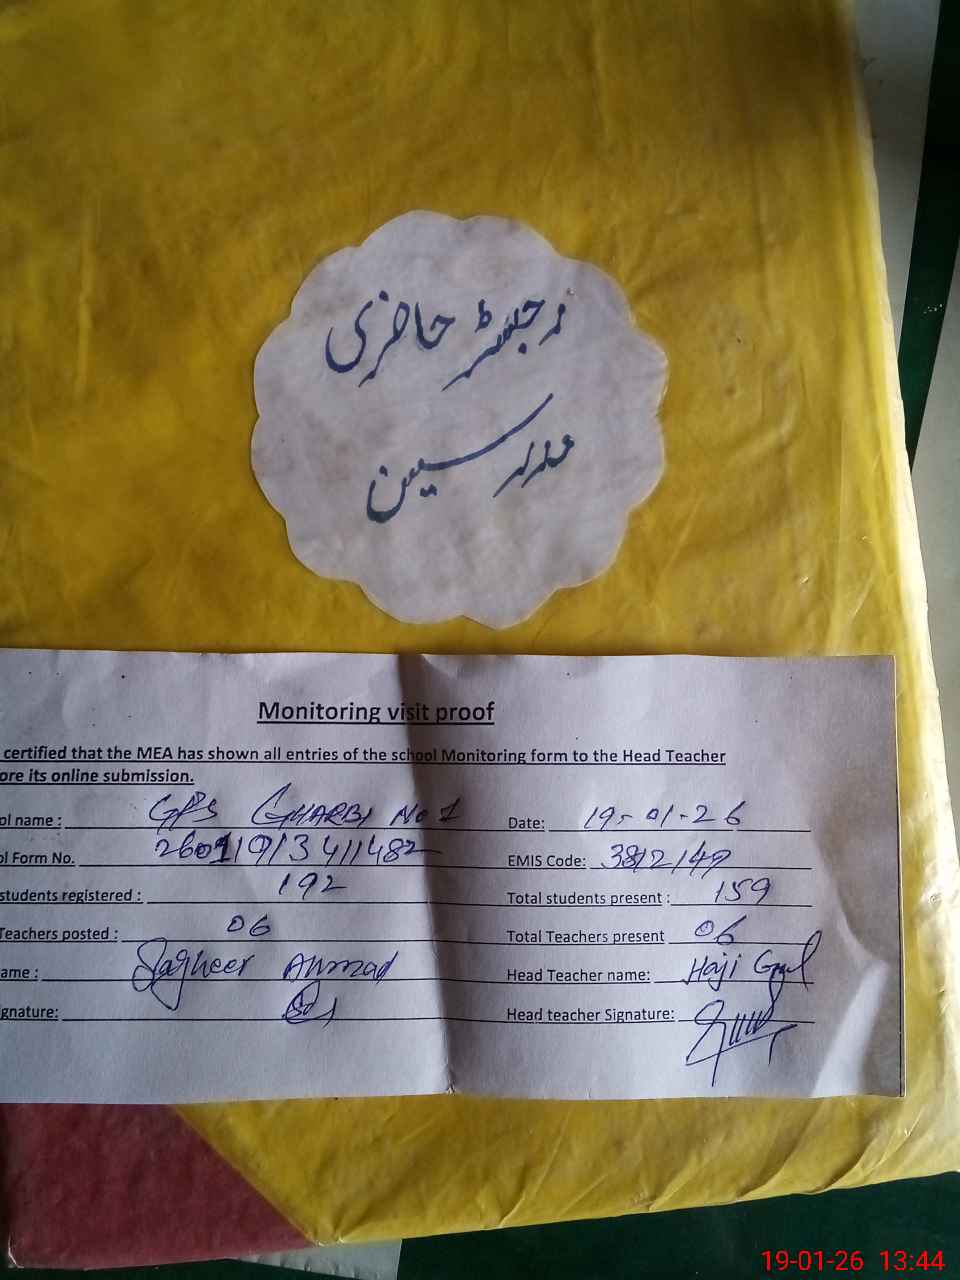 رجسٹر حاضری
مدرسین
Monitoring visit proof
certified that the MEA has shown all entries of the school Monitoring form to the Head Teacher
ore its online submission.
ol name : GPS GHARBI No 1 Date: 19-01-26
ol Form No. EMIS Code:
students registered : 192 Total students present : 159
Teachers posted : 06 Total Teachers present 06
ame : Sagheer Ahmad Head Teacher name: Haji Gul
gnature: Head teacher Signature:
19-01-26 13:44